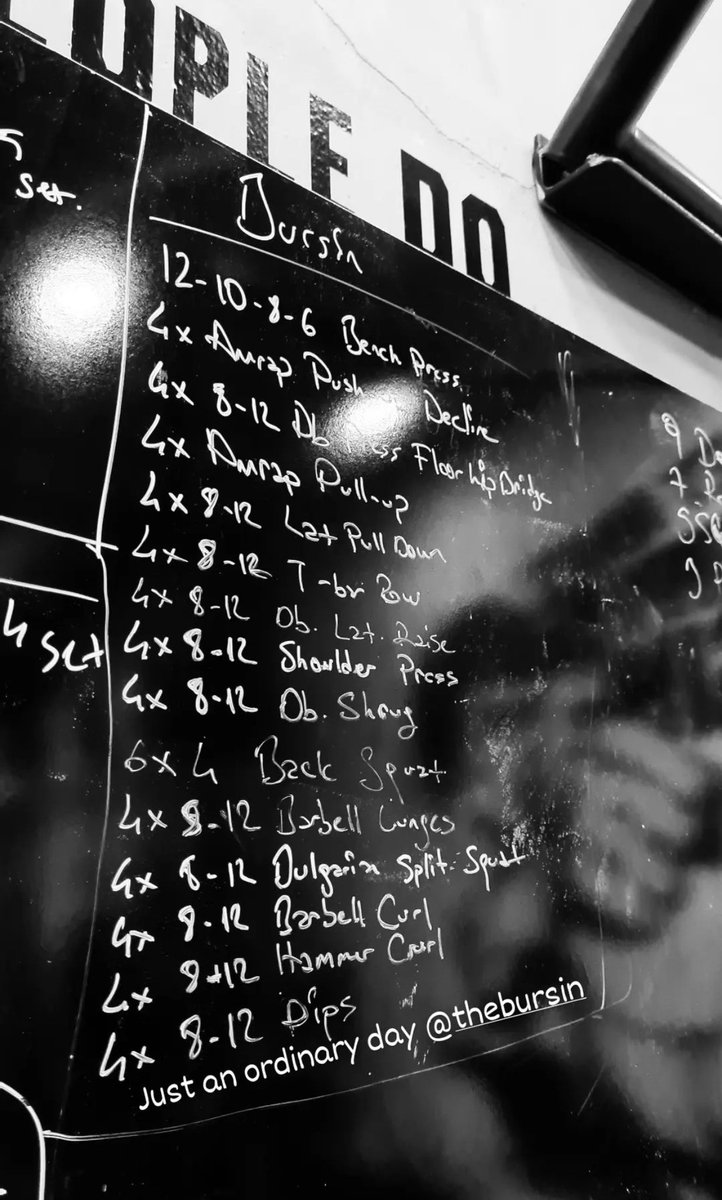 OPLE DO
set.
Bursin
12-10-8-6 Bench Press
4x Amrap Push Decline
4x 8-12 Db Press Floor hip Bridge
4x Amrap Pull-up
4x 8-12 Lat Pull Down
4x 8-12 T-br Row
4x 8-12 Db. Lat. Raise
4x 8-12 Shoulder Press
4x 8-12 Db. Shrug
6x4 Back Squat
4x 8-12 Barbell Lunges
4x 8-12 Bulgarian Split-Squat
4x 8-12 Barbell Curl
4x 8-12 Hammer Curl
4x 8-12 Dips
Just an ordinary day @thebursin
4 Set
9
7